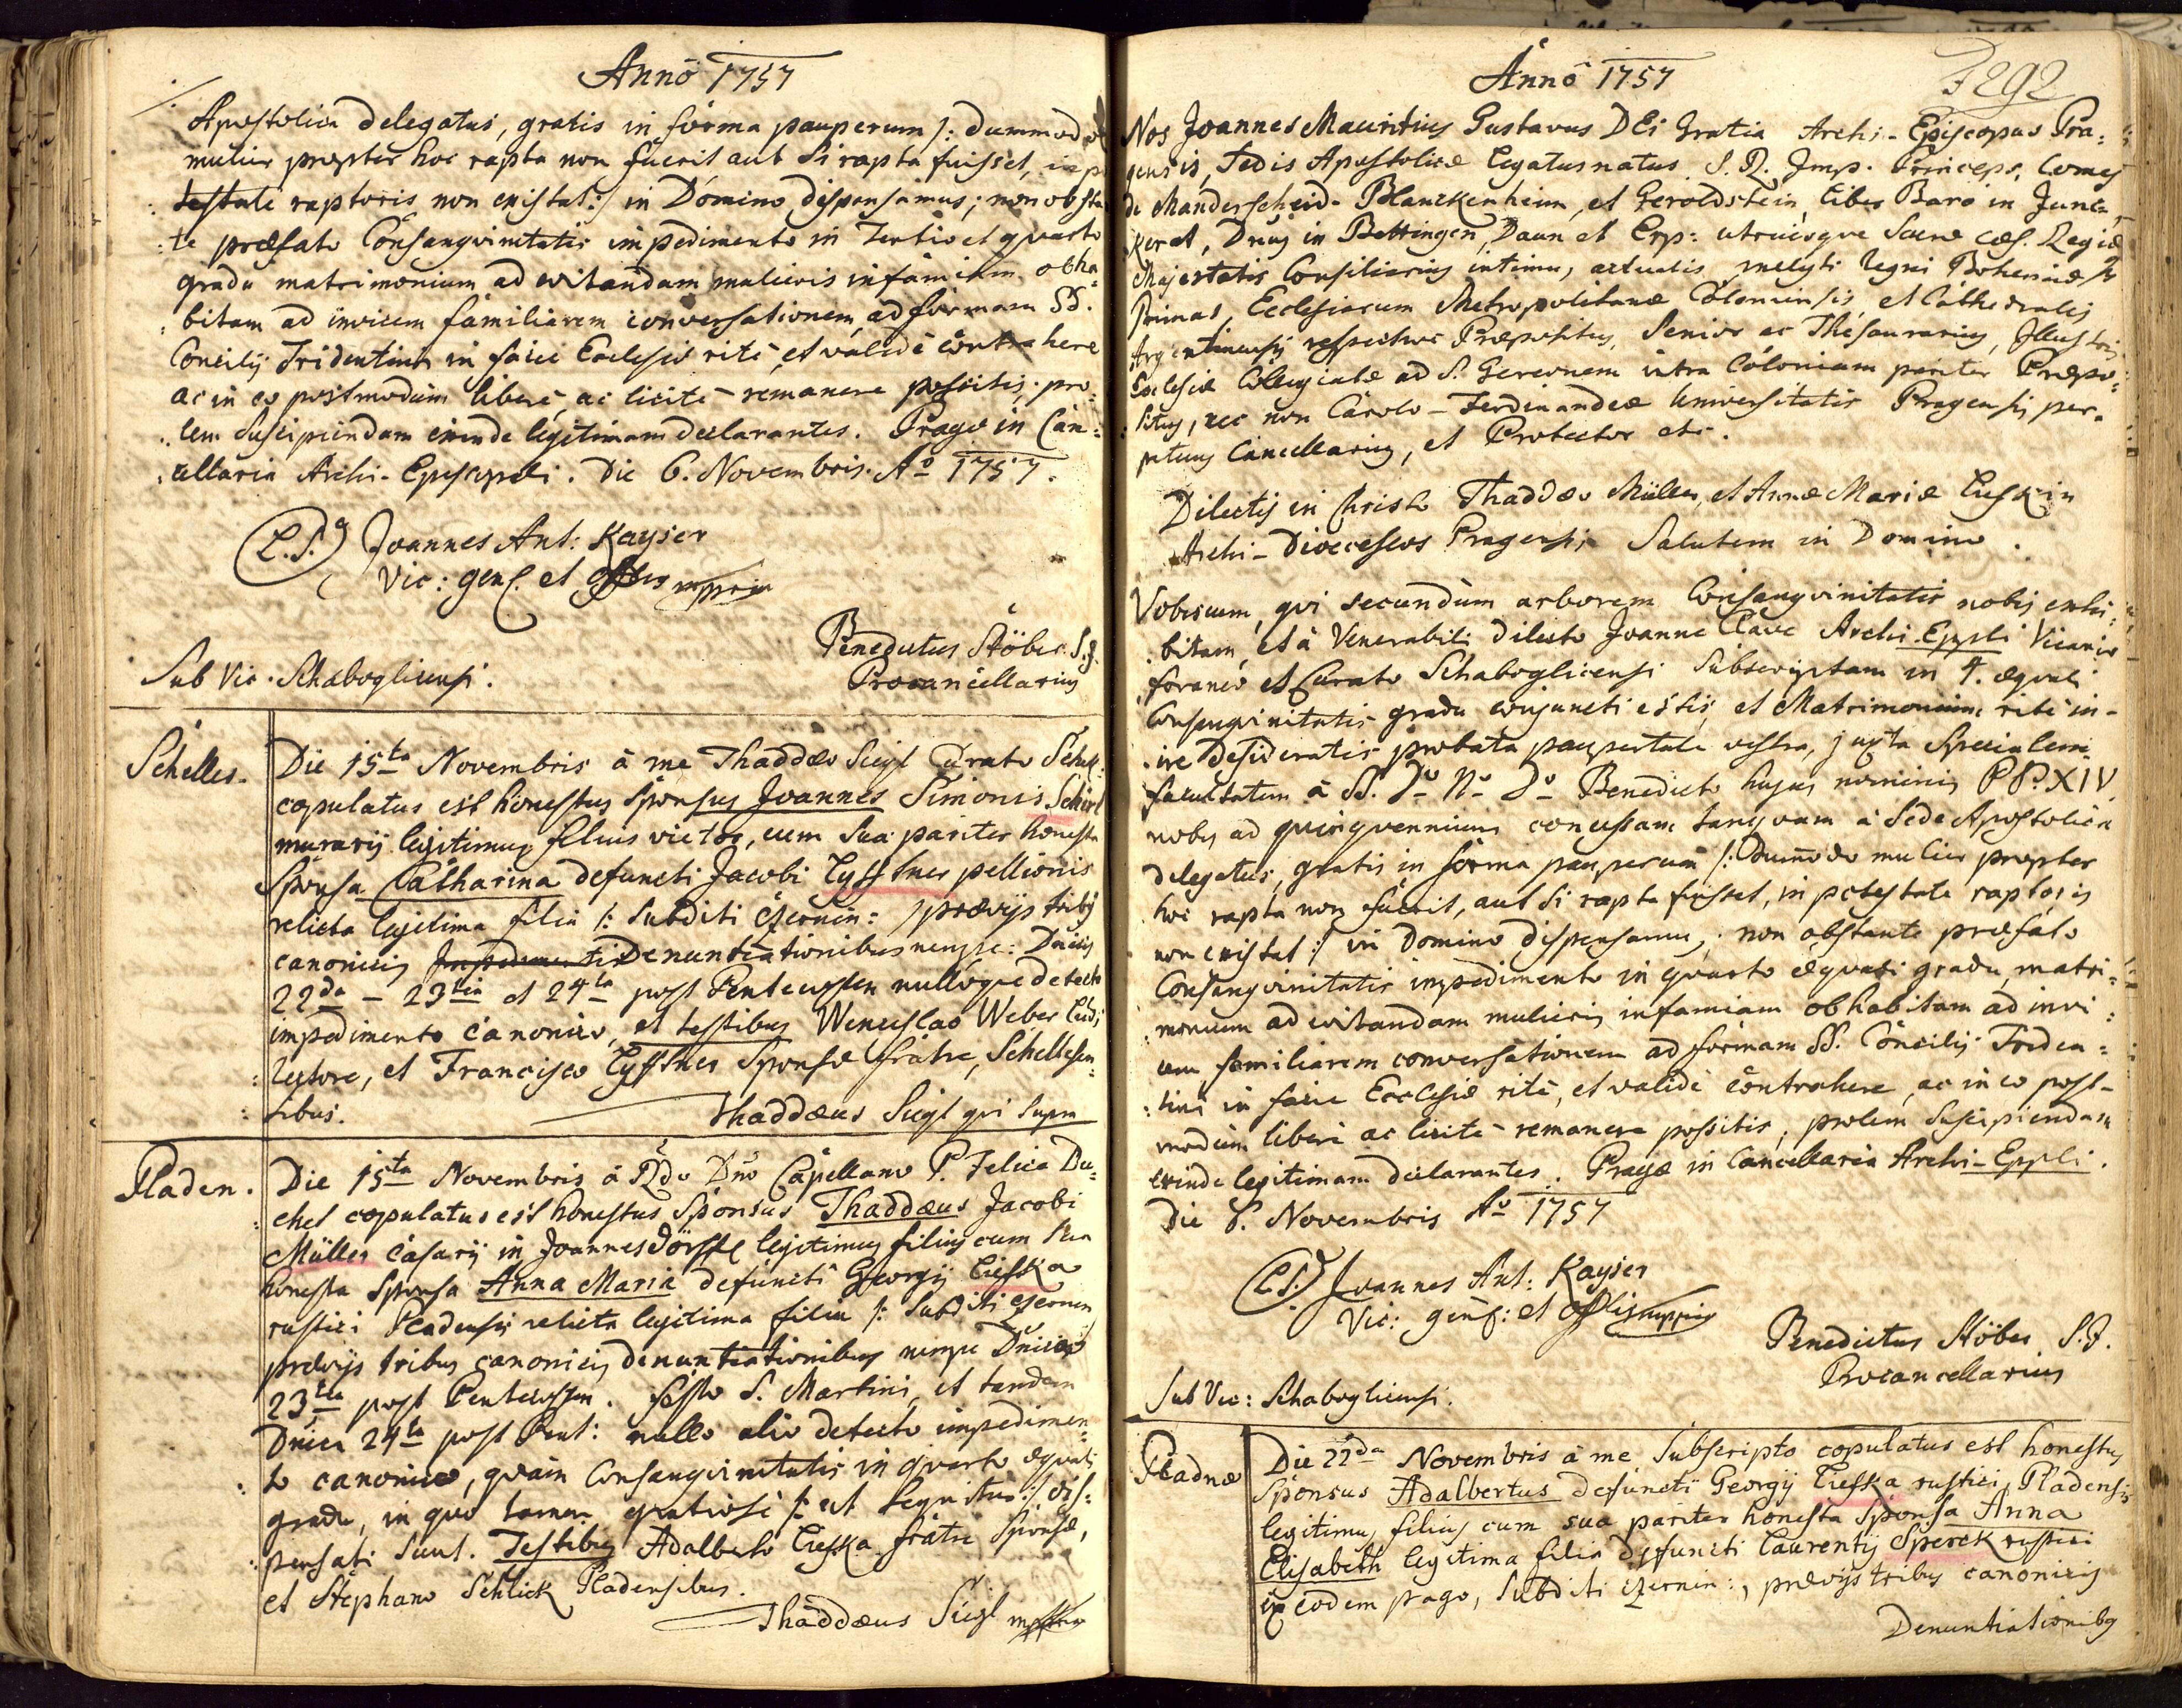 Anno 1757
Apostolica delegatus, gratis in forma pauperum /: dummodo
mulier propter hoc rapta non fuerit aut si rapta fuisset, in po
testate raptoris non existat :/ in Domino dispensamus; non obstan
te praefato Consangvinitatis impedimento in Tertio et quarto
gradu matrimonium ad evitandam mulieris infamiam obha=
bitam ad invicem familiarem conversationem, ad formam SS.
Concilij Tridentini in facie Ecclesiae ritè, et validè contrahere
ac in eo postmodum liberè, ac licitè remanere possitis; pro=
lem suscipiendam exinde legitimam declarantes. Pragae in Can=
cellaria Archi-Episcopali. Die 6. Novembris. Aō 1757.
(L.S.) Joannes Ant: Kayser
Vic: genl. et offlis mppria
Benedictus Stöber S.J.
Procancellarius
Sub Vic. Schaboglicensi.
Schelles. Die 15ta Novembris à me Thaddaeo Siegl Curato Schell:
copulatus est honestus Sponsus Joannes Simonis Schierl
murarij legitimus filius vietor, cum sua pariter honesta
Sponsa Catharina defuncti Jacobi Lyfftner pellionis
relicta legitima filia /: Subditi Czernin: / praevijs tribus
canonicis Denuntiationibus nempe: Dnicis
22da - 23tia et 24ta post Pentecosten nulloque detecto
impedimento canonico, et testibus Wenceslao Weber Ludi
rectore, et Francisco Lyfftner Sponsae fratre, Schellesen=
sibus.
Thaddaeus Siegl qui supra
Pladen. Die 15ta Novembris à Rdo Dno Capellano P. Felice Du=
chet copulatus est honestus Sponsus Thaddaeus Jacobi
Müller Casarij in Joannesdörffl legitimus filius cum sua
honesta Sponsa Anna Maria defuncti Georgij Liefska
rustici Pladensis relicta legitima filia /: Subditi Czernin
praevijs tribus canonicis denuntiationibus nempe Dnica
23tia post Pentecosten. festo S. Martini, et tandem
Dnica 24ta post Pent: nullo alio detecto impedimen=
to canonico, quam Consangvinitatis in quarto aequali
gradu, in quo tamen gratiosè /: ut sequitur :/ dis=
pensati sunt. Testibus Adalberto Liefska fratre Sponsae,
et Stephano Schlick Pladensibus.
Thaddaeus Siegl mppria
Anno 1757
F292
Nos Joannes Mauritius Gustavus DEi Gratia Archi-Episcopus Pra=
gensis, Sedis Apostolicae legatus natus. S. R. Imp. Princeps, Comes
de Manderscheid-Blanckenheim, et Geroldstein, liber Baro in Junc=
kerat, Dnus in Bettingen, Daun et Erp: utriusque Sacrae Caes. Regiae
Majestatis Consiliarius intimus, actualis, inclyti Regni Bohemiae
Primas, Ecclesiarum Metropolitanae Coloniensis, et Cathedralis
Argentinensis respective Praepositus, Senior ac Thesaurarius, Illustris
Ecclesiae Collegiatae ad S. Gereonem intra Coloniam pariter Praepo=
situs, nec non Carolo-Ferdinandeae Universitatis Pragensis per=
petuus Cancellarius, et Protector etc.
Dilectis in Christo Thaddaeo Müller, et Annae Mariae Liefskin
Archi-Dioeceseos Pragensis Salutem in Domino.
Vobiscum, qui secundum arborem Consangvinitatis nobis exhi=
bitam, et à Venerabili dilecto Joanne Clave Archi-Eppli Vicario
foraneo et Curato Schaboglicensi subscriptam in 4. aequali
Consangvinitatis gradu conjuncti estis, et Matrimonium ritè in=
ire desideratis, probata paupertate vestra, juxta specialem
facultatem à SS. Do No Do Benedicto hujus nominis PP. XIV
nobis ad quinquennium concessam tanquam à Sede Apostolica
delegatus, gratis in forma pauperum /: Dummodo mulier propter
hoc rapta non fuerit, aut si rapta fuisset, in potestate raptoris
non existat :/ in Domino dispensamus, non obstante praefato
Consangvinitatis impedimento in quarto aequali gradu, matri=
monium ad evitandam mulieris infamiam obhabitam ad invi=
cem familiarem conversationem ad formam SS. Concilij Triden=
tini in facie Ecclesiae ritè, et validè contrahere, ac in eo post=
modum liberè ac licitè remanere possitis, prolem suscipiendam
exinde legitimam declarantes. Pragae in Cancellaria Archi-Eppli.
Die 8. Novembris Aō 1757
(L.S.) Joannes Ant: Kayser
Vic: genl: et offlis mppria
Benedictus Stöber S.J.
Procancellarius
Sub Vic: Schaboglicensi.
Pladnae Die 22da Novembris à me subscripto copulatus est honestus
Sponsus Adalbertus defuncti Georgij Liefska rustici Pladensis
legitimus filius cum sua pariter honesta Sponsa Anna
Elisabeth legitima filia defuncti Laurentij Sperek rustici
in eodem pago, Subditi Czernin:, praevijs tribus canonicis
Denuntiationibus